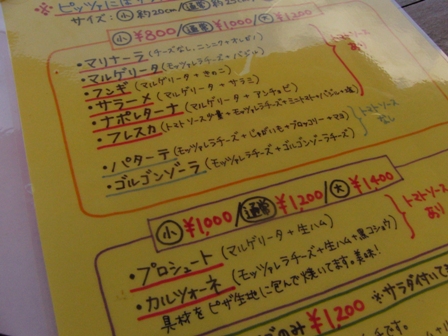 サイズ: 小 約20cm/通常 約25cm
小 ¥800/通常 ¥1000/大 ¥1200
・マリナーラ(チーズなし、ニンニク+オレガノ)
・マルゲリータ(モッツァレラチーズ+バジル)
・フンギ(マルゲリータ+きのこ)
・サラーメ(マルゲリータ+サラミ)
・ナポレターナ(マルゲリータ+アンチョビ)
・フレスカ(トマトソース少量+モッツァレラチーズ+ミニトマト+バジル+塩)
トマトソース
あり
・パターテ(モッツァレラチーズ+じゃがいも+ブロッコリー+マヨ)
・ゴルゴンゾーラ(モッツァレラチーズ+ゴルゴンゾーラチーズ)
トマトソース
なし
小 ¥1,000/通常 ¥1,200/大 ¥1,400
・プロシュート(マルゲリータ+生ハム)
・カルツォーネ(モッツァレラチーズ+生ハム+黒コショウ)
具材をピザ生地に包んで焼いてます。美味!
トマトソース
あり
のみ ¥1,200 *サラダ付いて